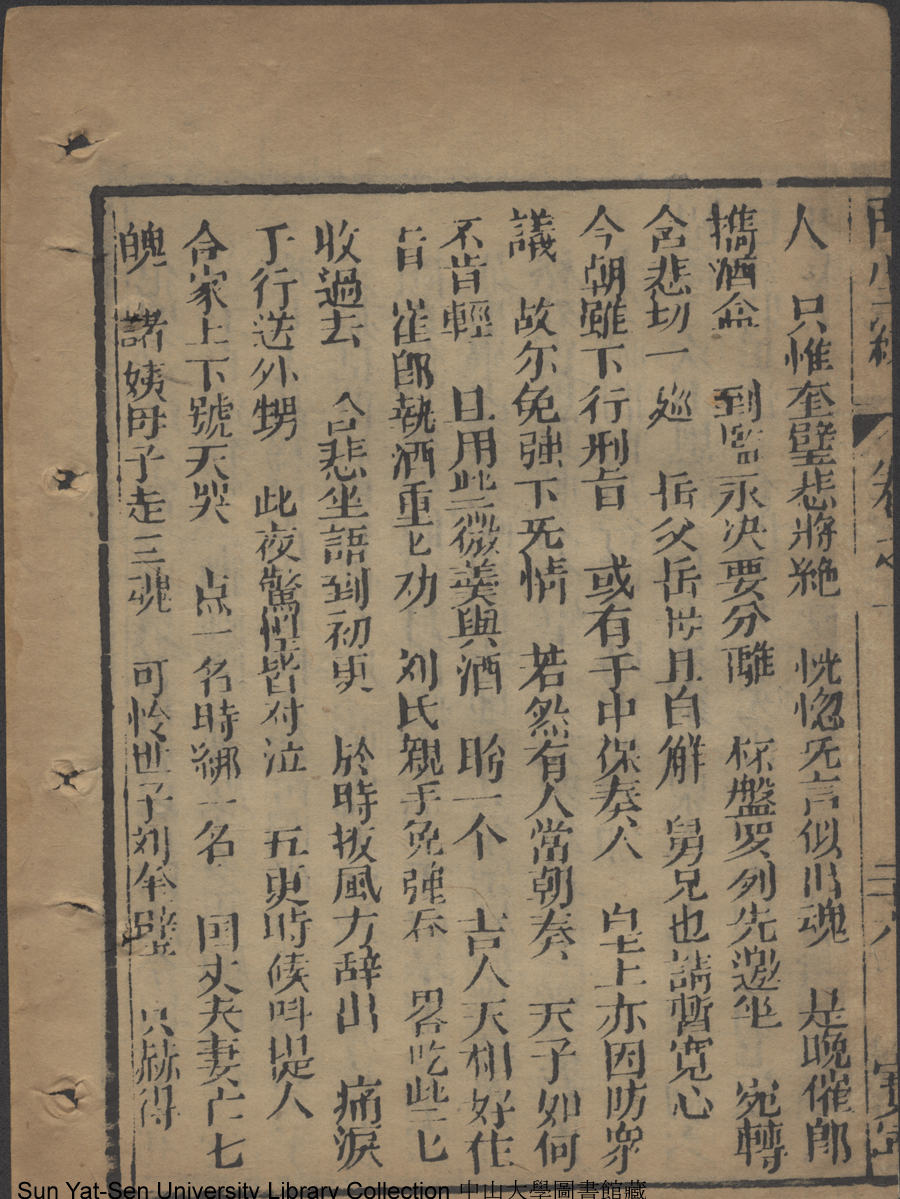 人 只惟奎壁悲將絶 恍惚旡言似出魂 是晚崔郎
携酒盒 到監永决要分離 杯盤罗列先邀坐 宛轉
含悲切一巡 岳父岳母且自觧 舅兄也請暫寛心
今朝雖下行刑旨 或有于中保奏人 皇上亦因防衆
議 故尔免強下旡情 若然有人當朝奏 天子如何
不肯輕 且用些微羹與酒 昐一个 吉人天相好佳
音 崔郎執酒重匕劝 刘氏親手免強吞 畧吃些匕
收過去 含悲坐語到初更 於時扳風方辞出 痛淚
于行送外甥 此夜驚惶皆对泣 五更時候呌提人
合家上下號天哭 点一名時綁一名 回丈夫妻亡七
魄 諸姨母子走三魂 可怜世子刘奎壁 只赫得
卷之
二十八